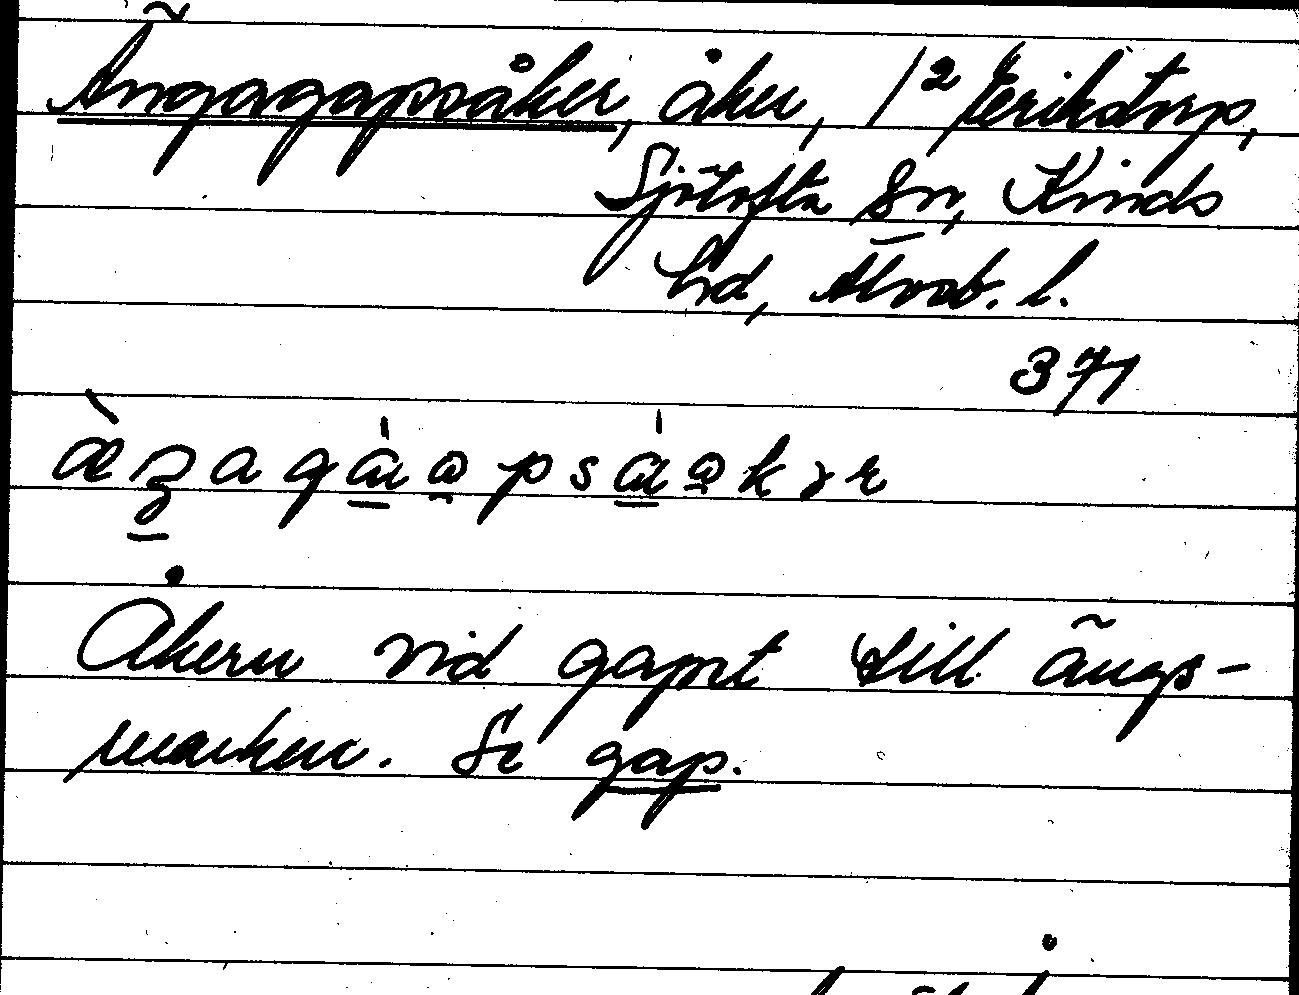 Ängagapsåker, åker, 1² Erikstorp,
Sjötofta sn, Kinds
hd, Älvsb. l.
371
Åkern vid gapet till ängs-
marken. Se gap.